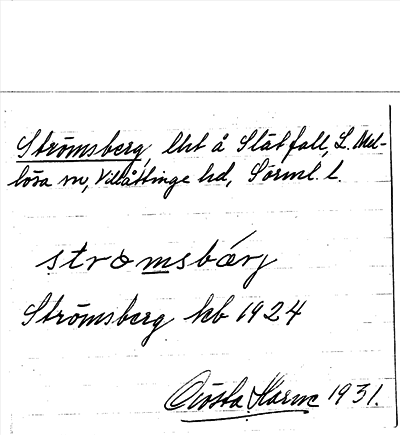 Strömsberg, lht å Slätfall, L. Mel-
lösa sn, Villåttinge hd, Sörml. l.
strømsbærj
Strömsberg kb 1924
Gösta Harne 1931.